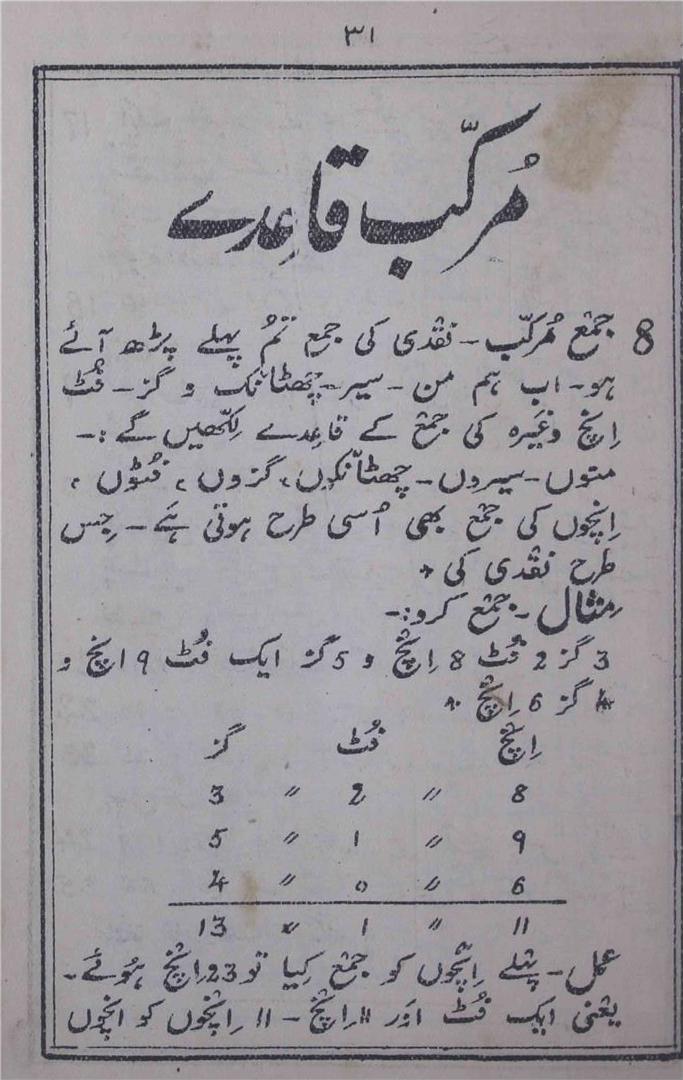 ۳۱
مُرکّب قاعِدے
8 جمع مُرکّب ۔ نقدی کی جمع تُم پہلے پڑھ آئے
ہو۔ اب ہم من ۔ سیر ۔ چھٹانک و گز ۔ فُٹ
اِنچ وغیرہ کی جمع کے قاعِدے لِکّھیں گے :۔
منوں ۔ سیروں ۔ چھٹانکوں، گزوں، فُٹوں،
اِنچوں کی جمع بھی اُسی طرح ہوتی ہَے ۔ جِس
طرح نقدی کی ٭
مِثال ۔ جمع کرو:۔
3 گز 2 فُٹ 8 اِنچ و 5 گز ایک فُٹ 9 اِنچ و
4 گز 6 اِنچ ٭
اِنچ فُٹ گز
8 〃 2 〃 3
9 〃 1 〃 5
6 〃 0 〃 4
11 〃 1 〃 13
عمل ۔ پہلے اِنچوں کو جمع کِیا تو 23 اِنچ ہُوئے ۔
یعنی ایک فُٹ اَور 11 اِنچ ۔ 11 اِنچوں کو اِنچوں